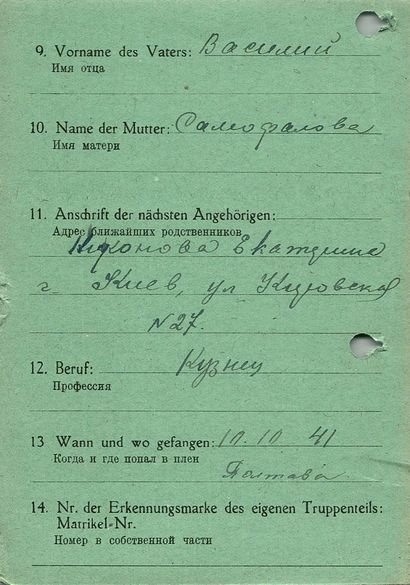 9. Vorname des Vaters: Василий
Имя отца
10. Name der Mutter: Самофалова
Имя матери
11. Anschrift der nächsten Angehörigen:
Адрес ближайших родственников
Екатерина
г. Киев, ул
N 27.
12. Beruf: Кузнец
Профессия
13 Wann und wo gefangen: 10.10 41
Когда и где попал в плен
Полтава
14. Nr. der Erkennungsmarke des eigenen Truppenteils:
Matrikel-Nr.
Номер в собственной части